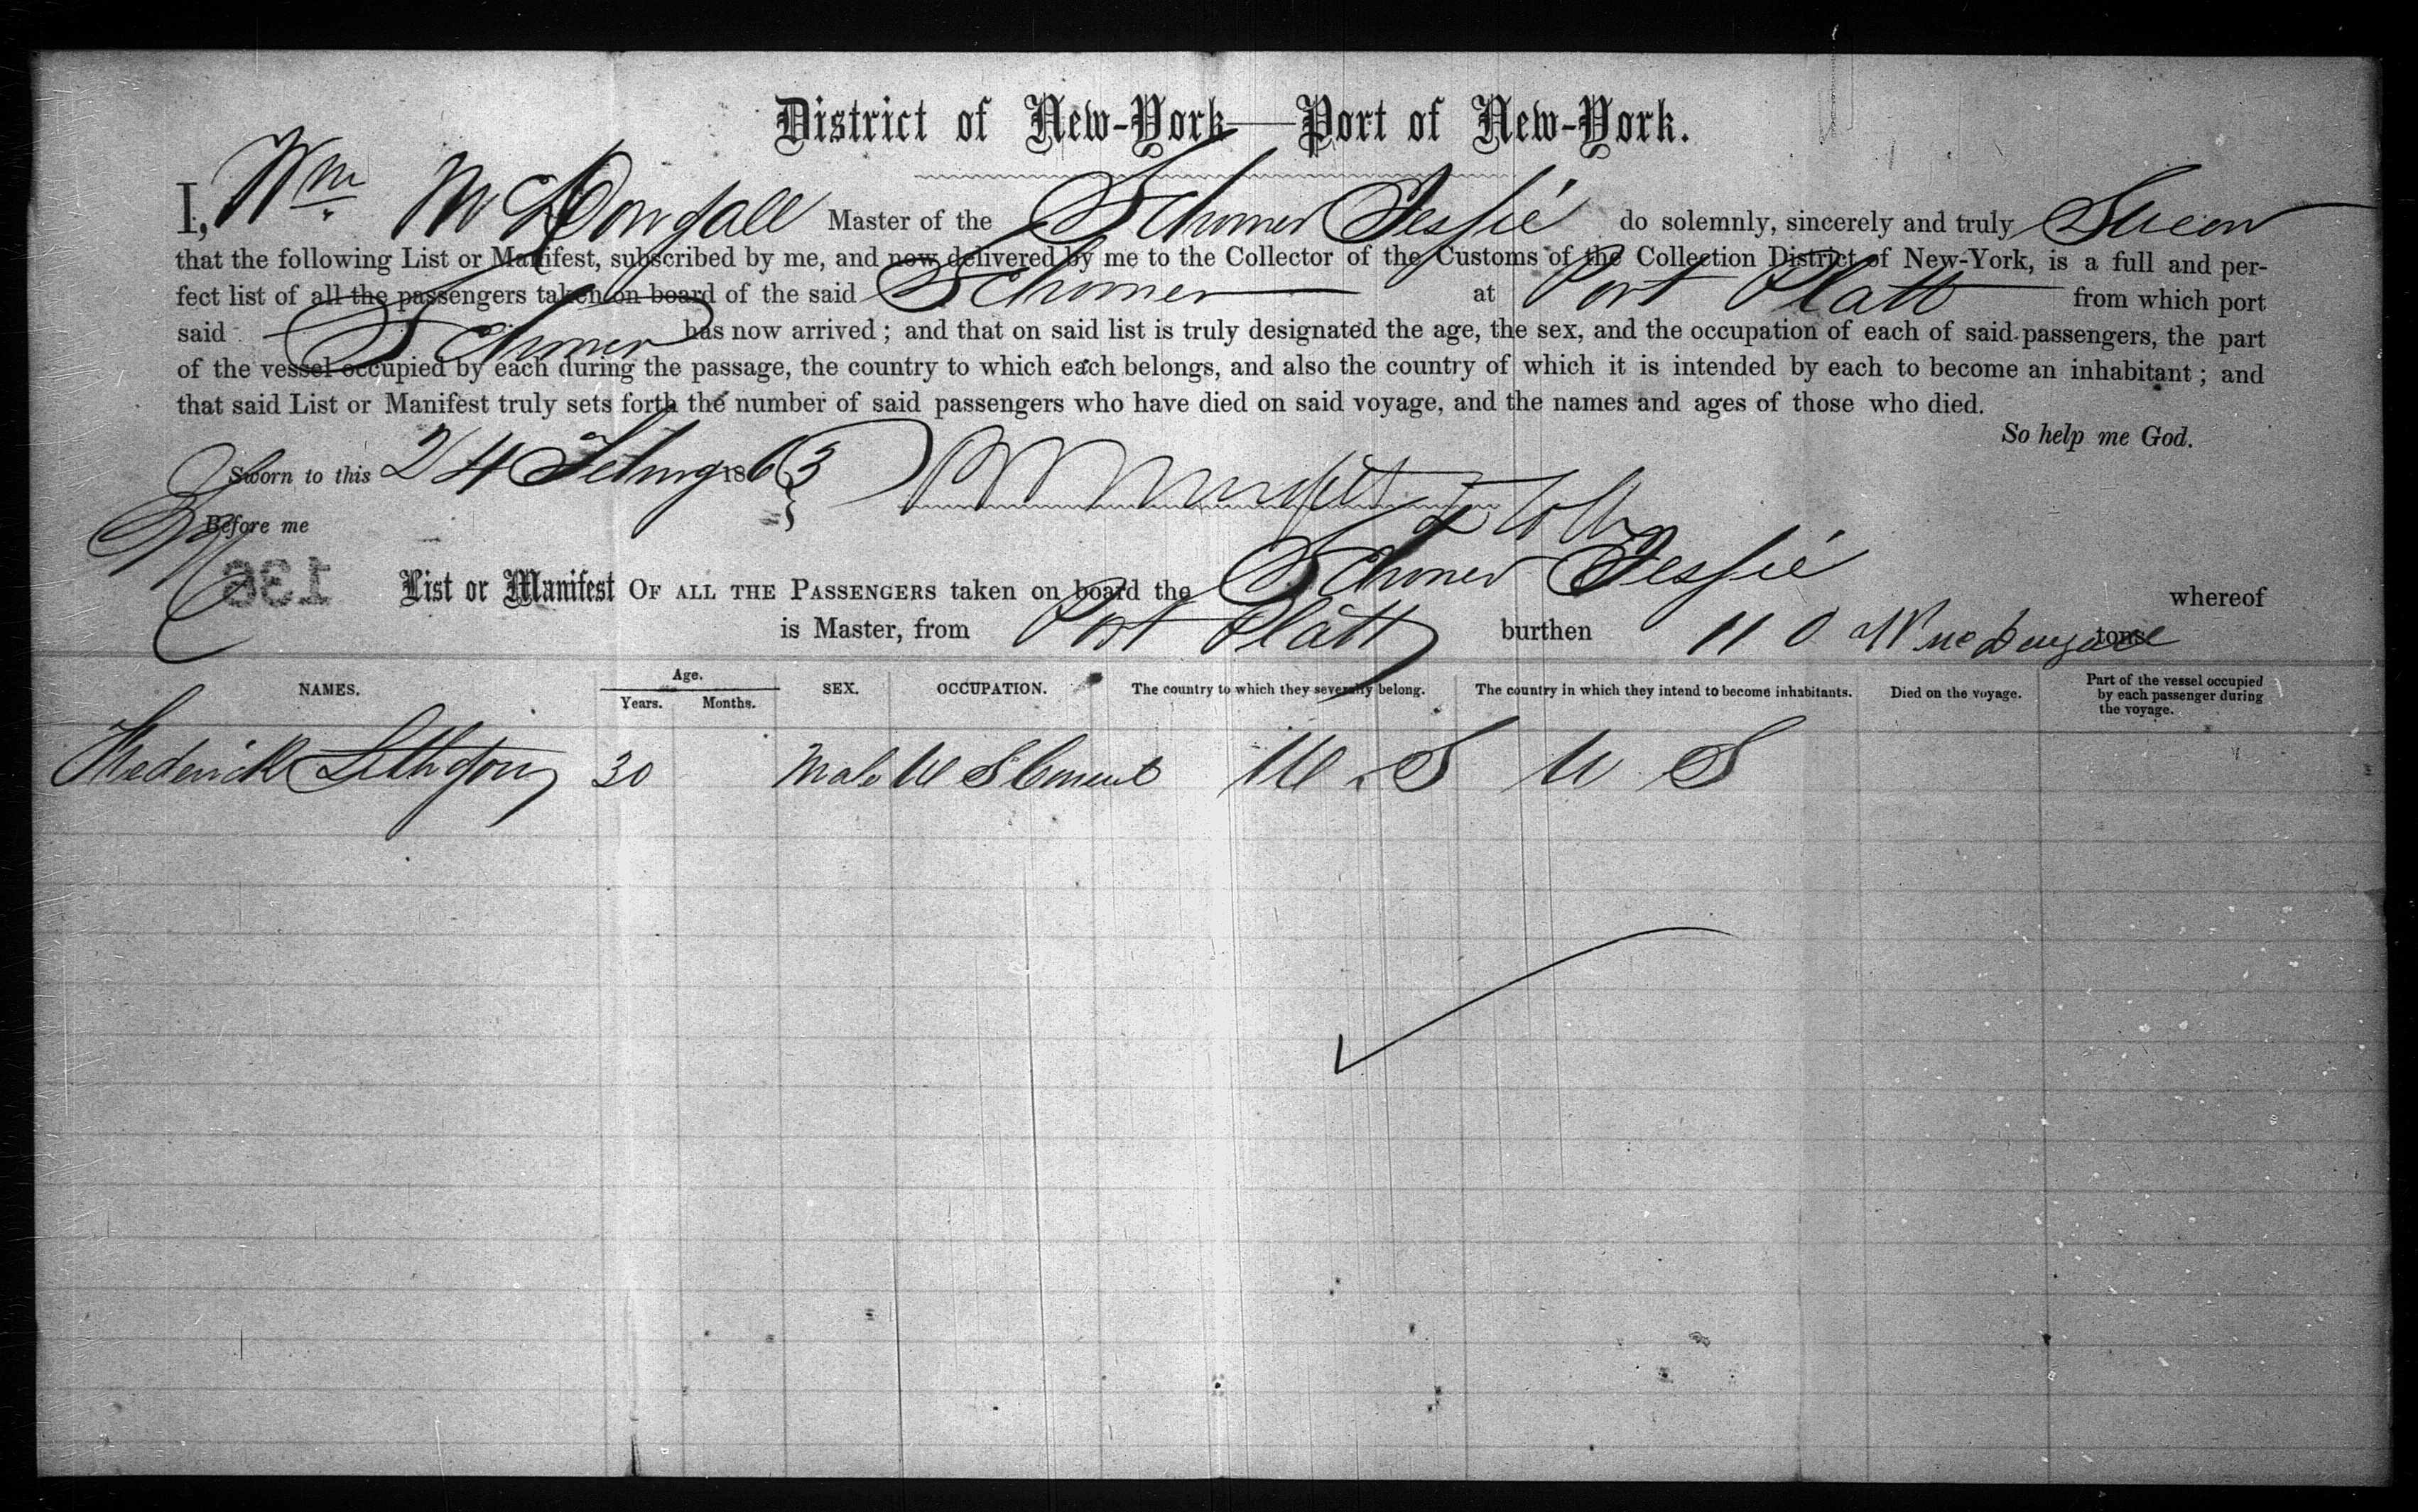 District of New-York—Port of New-York.
I, Wm McDougall Master of the Schooner Jessie do solemnly, sincerely and truly Swear
that the following List or Manifest, subscribed by me, and now delivered by me to the Collector of the Customs of the Collection District of New-York, is a full and per-
fect list of all the passengers taken on board of the said Schooner at Port Platt from which port
said Schooner has now arrived; and that on said list is truly designated the age, the sex, and the occupation of each of said passengers, the part
of the vessel occupied by each during the passage, the country to which each belongs, and also the country of which it is intended by each to become an inhabitant; and
that said List or Manifest truly sets forth the number of said passengers who have died on said voyage, and the names and ages of those who died.
So help me God.
Sworn to this 24 Februry 1863
Before me
136
List or Manifest OF ALL THE PASSENGERS taken on board the Schooner Jessie whereof
is Master, from Port Platt burthen 110 tons
NAMES. Age. Years. Months. SEX. OCCUPATION. The country to which they severally belong. The country in which they intend to become inhabitants. Died on the voyage. Part of the vessel occupied by each passenger during the voyage.
Frederick 30 Male U S U S U S